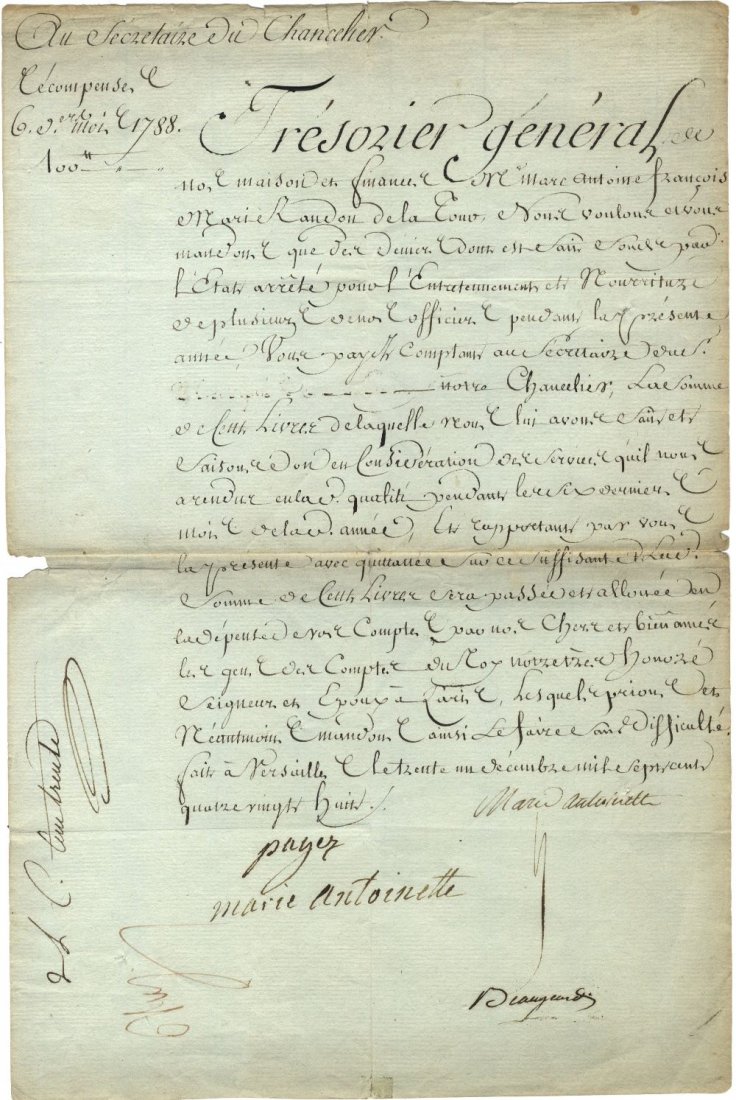 Au Sécretaire du Chancelier.
Récompenses
6. d.ers mois 1788.
100
Trésorier général de
nos maison et finances M.e Marc Antoine François
Marie Randon de la Tour, Nous voulons et vous
mandons que des deniers dont est fait fonds par
l'État arrêté pour l'Entretennement et Nourriture
de plusieurs de nos officiers pendant la présente
année, Vous payés Comptant au Secretaire du S.r
notre Chancelier, La somme
de Cent Livres de laquelle Nous lui avons fait et
faisons don en Considération des services qu'il nous
a rendus en lad. qualité pendant les six derniers
mois de lad. année, Et rapportant par vous
la présente avec quittance sur ce suffisante Lad.
Somme de Cent Livres sera passée et allouée en
la dépense de vos Comptes par nos Chers et bien amés
les gens des Comptes du Roy notre très Honoré
Seigneur et Epoux à Paris, Lesquels prions et
Néantmoins mandons ainsi Le faire sans difficulté.
fait à Versailles le trente un décembre mil sept cent
quatre vingt huit.
Marie Antoinette
payez
marie antoinette
Beaugeard
Cent trente